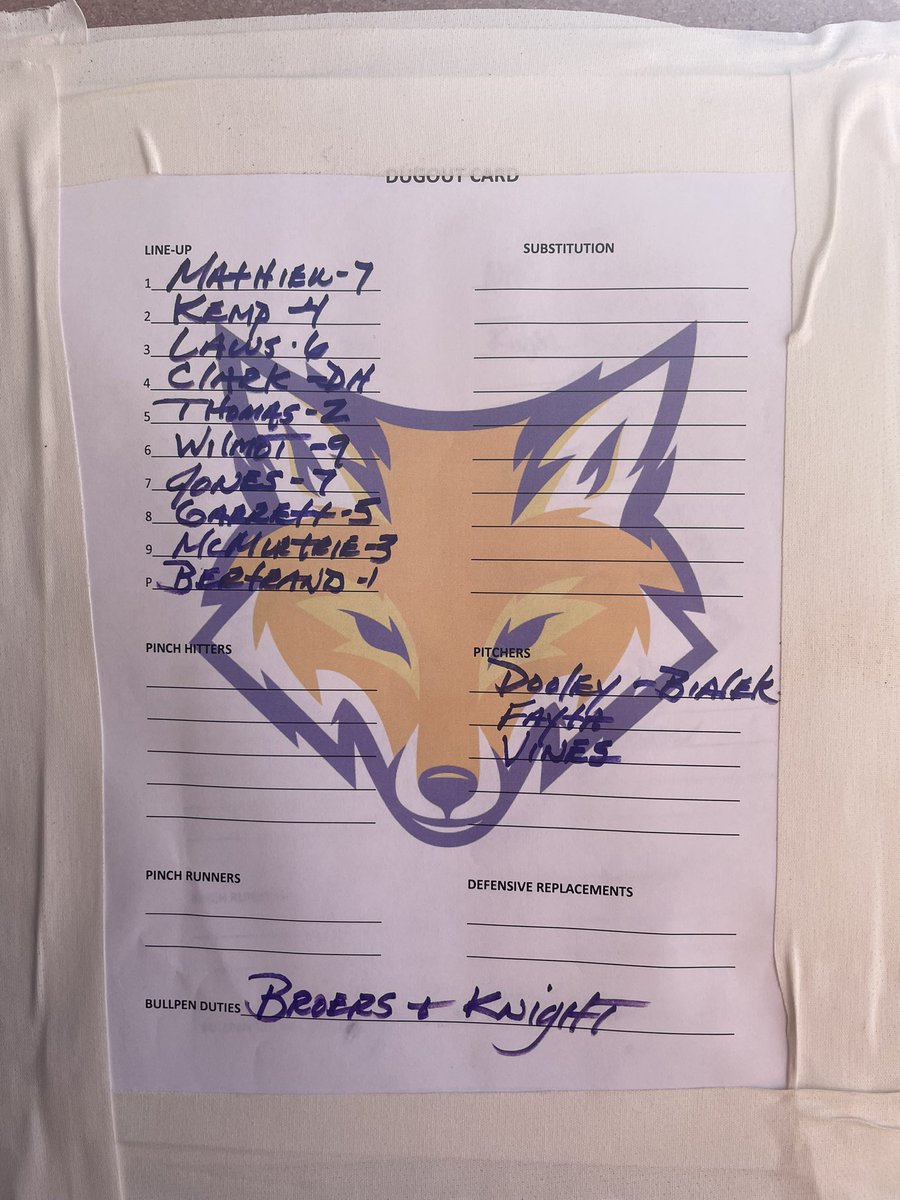 DUGOUT CARD
LINE-UP
1 MATHIEU-7
2 KEMP-4
3 LAWS-6
4 CLARK-DH
5 THOMAS-2
6 WILMOT-9
7 JONES-7
8 GARRETT-5
9 McMURTRIE-3
P BERTRAND-1
SUBSTITUTION
PINCH HITTERS
PITCHERS
DOOLEY - BIALEK
FAYTA
VINES
PINCH RUNNERS
DEFENSIVE REPLACEMENTS
BULLPEN DUTIES BROERS + KNIGHT